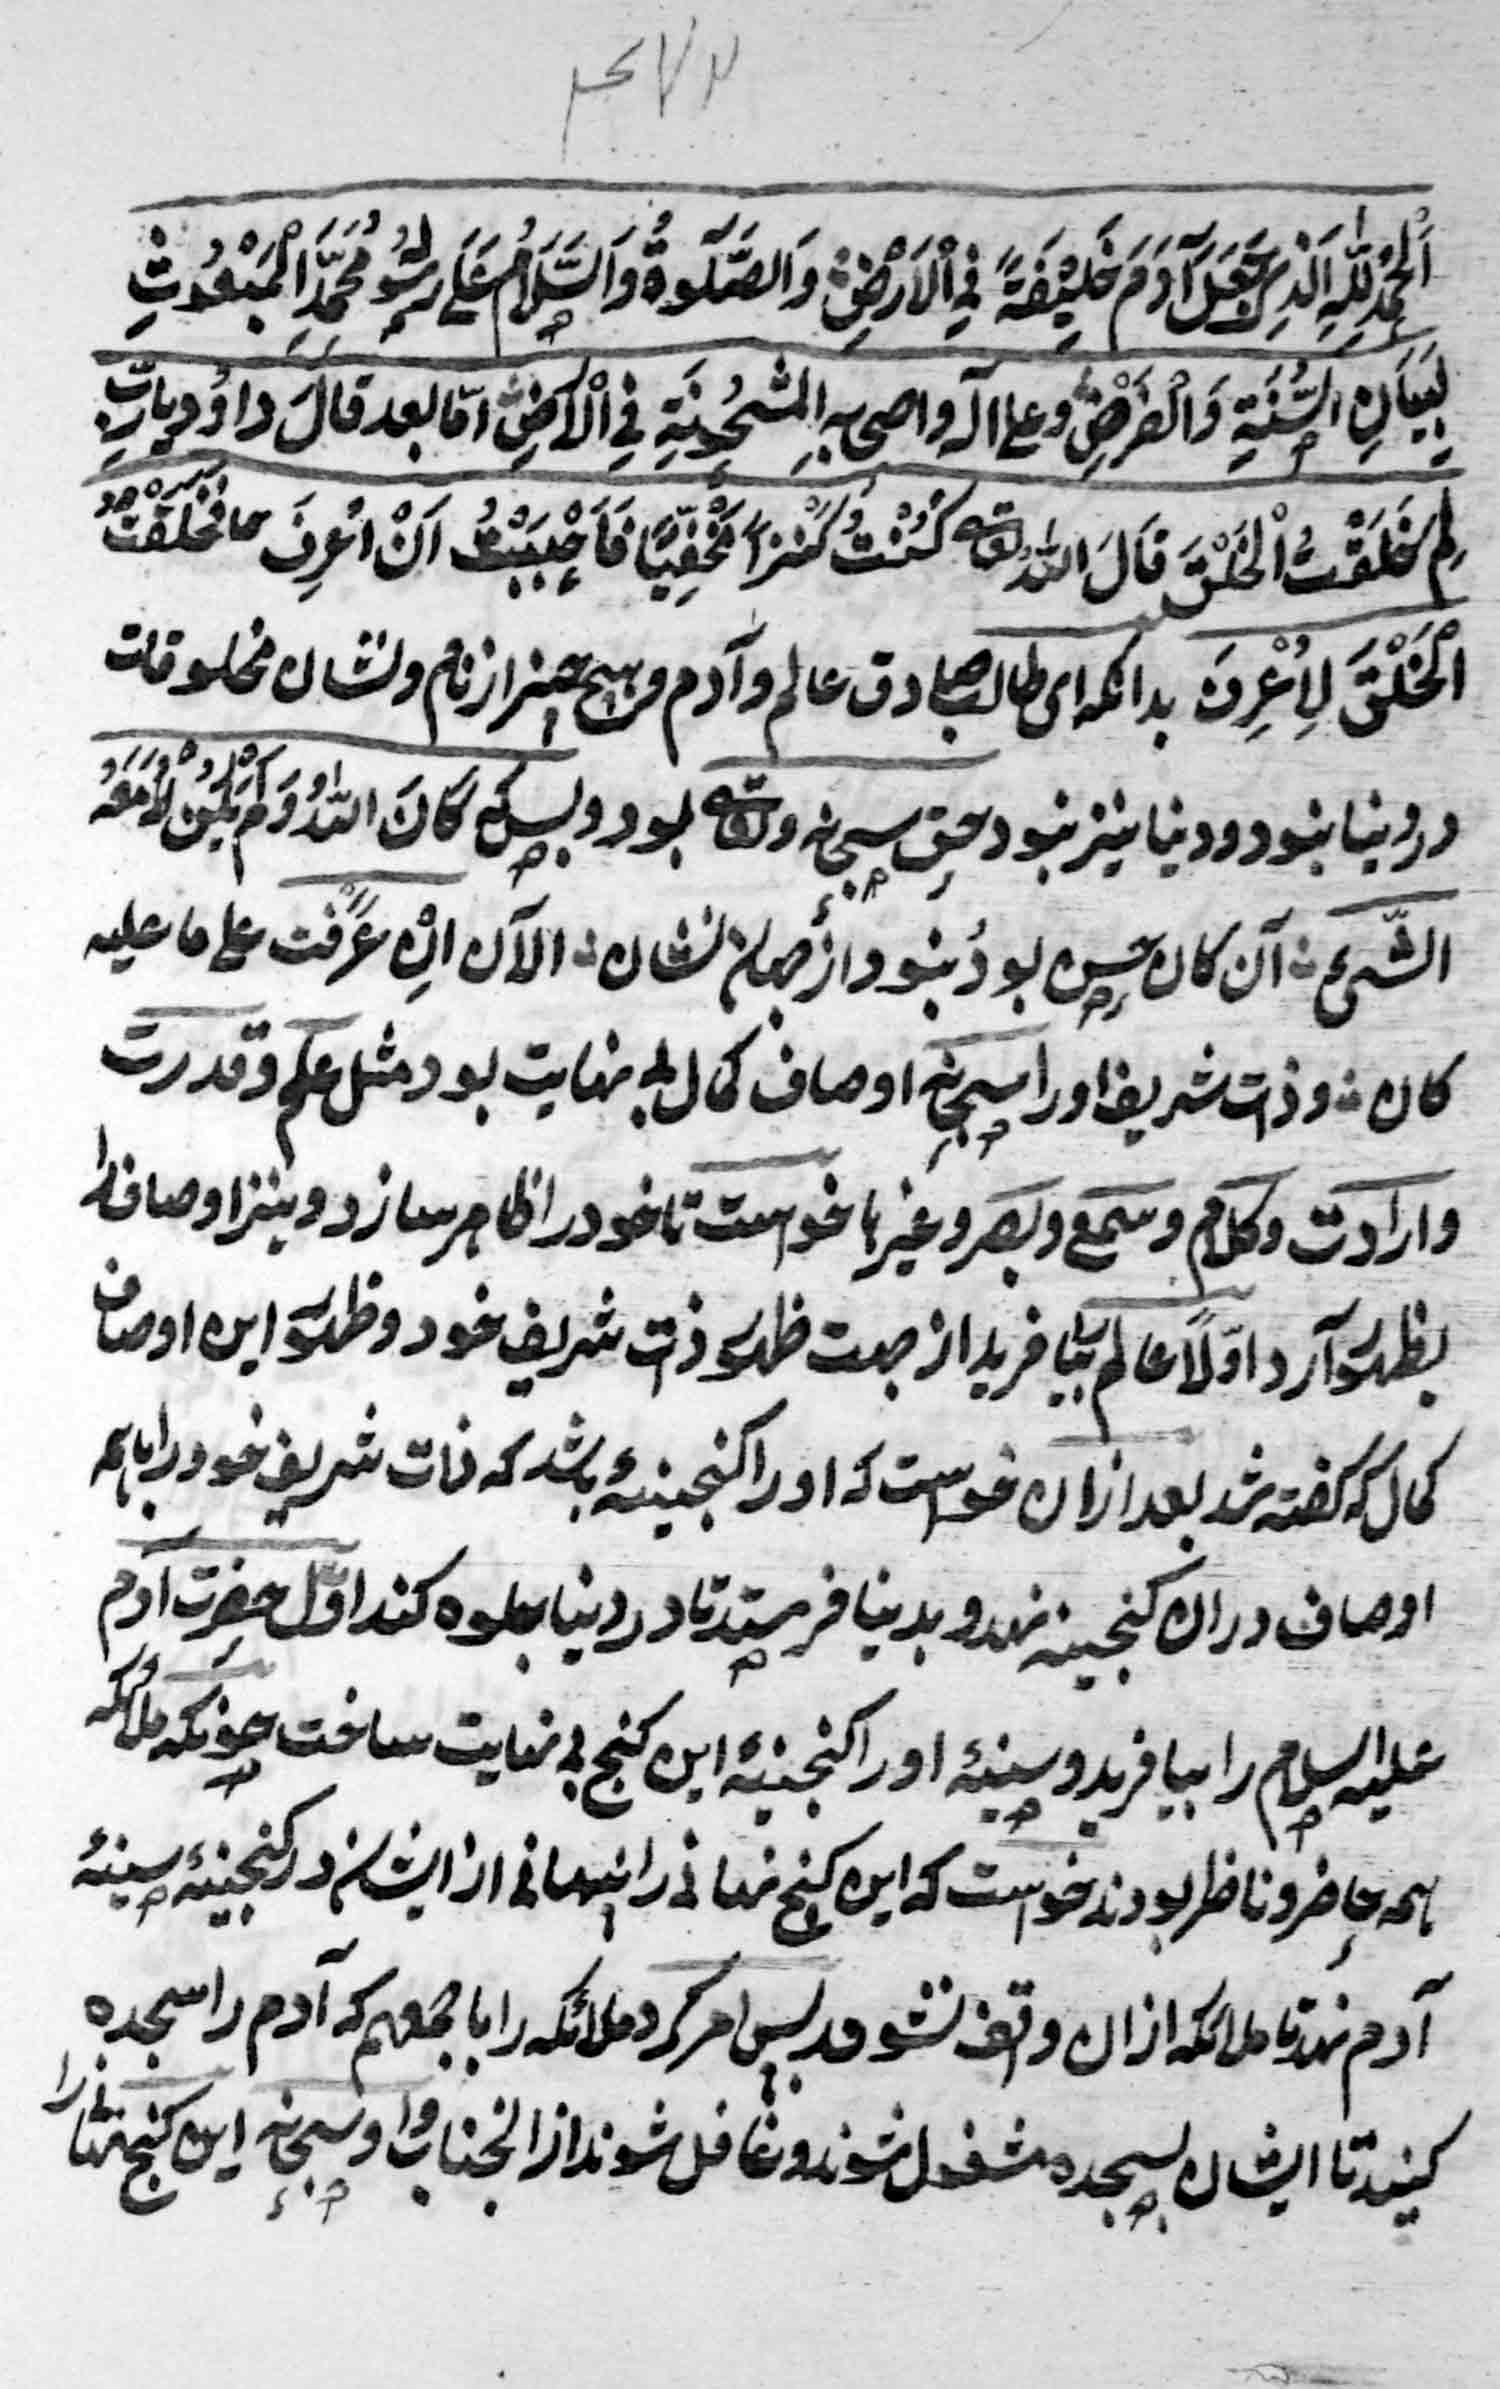 اَلْحَمْدُ لِلّٰهِ الَّذِی جَعَلَ آدَمَ خَلِیْفَةً فِی الْاَرْضِ وَالصَّلٰوةُ وَالسَّلَامُ عَلٰی رَسُوْلِهٖ مُحَمَّدٍ الْمَبْعُوْثِ
لِبَیَانِ السُّنَةِ وَالْفَرْضِ وعلی آله واصحابه الْمَشْحُوْنَةِ فِی الْاَرْضِ امّا بعد قَالَ داوُد یارَبِّ
لِمَ خَلَقْتَ الْخَلْقَ قَالَ اللّٰهُ تعالی کُنْتُ کَنْزًا مَخْفِیًّا فَاَحْبَبْتُ اَنْ اُعْرِفَ فَخَلَقْتُ
الْخَلْقَ لِاُعْرَفَ بدانکه ای طالب صادق عالم و آدم و هیچ چیز از نام و نشان مخلوقات
در دنیا نبود و دنیا نیز نبود حق سبحانه وتعالی بود و بس کَمَا کَانَ اللّٰهُ وَلَمْ یَکُنْ مَعَهُ
الشَّیْءُ آن کان حسن بود نبود از جهان نشان الآن اِنْ عَرَفْت علی ما علیه
کان و ذات شریف اورا سبحانه اوصاف کمال بی نهایت بود مثل علم و قدرت
و ارادت و کلام و سمع و بصر و غیرها خواست تا خود را ظاهر سازد و نیز اوصاف را
بظهور آرد اوّلاً عالم بیافرید از جهت ظهور ذات شریف خود و ظهور این اوصاف
کمال که گفته شد بعد ازان خواست که اورا گنجینهٔ باشد که ذات شریف خود را با همه
اوصاف دران گنجینه نهد و بدنیا فرستد تا در دنیا جلوه کند اوّل حضرت آدم
علیه السلام را بیافرید و سینهٔ اورا گنجینهٔ این گنج بی نهایت ساخت چونکه ملائکه
همه حاضر و ناظر بودند خواست که این گنج نهانی را نهانی از ایشان در گنجینهٔ سینهٔ
آدم نهد تا ملائکه ازان واقف نشوند پس امر کرد ملائکه را باجمعهم که آدم را سجده
کنید تا ایشان بسجده مشغول شوند و غافل شوند از انجناب و او سبحانه این گنج نهان را